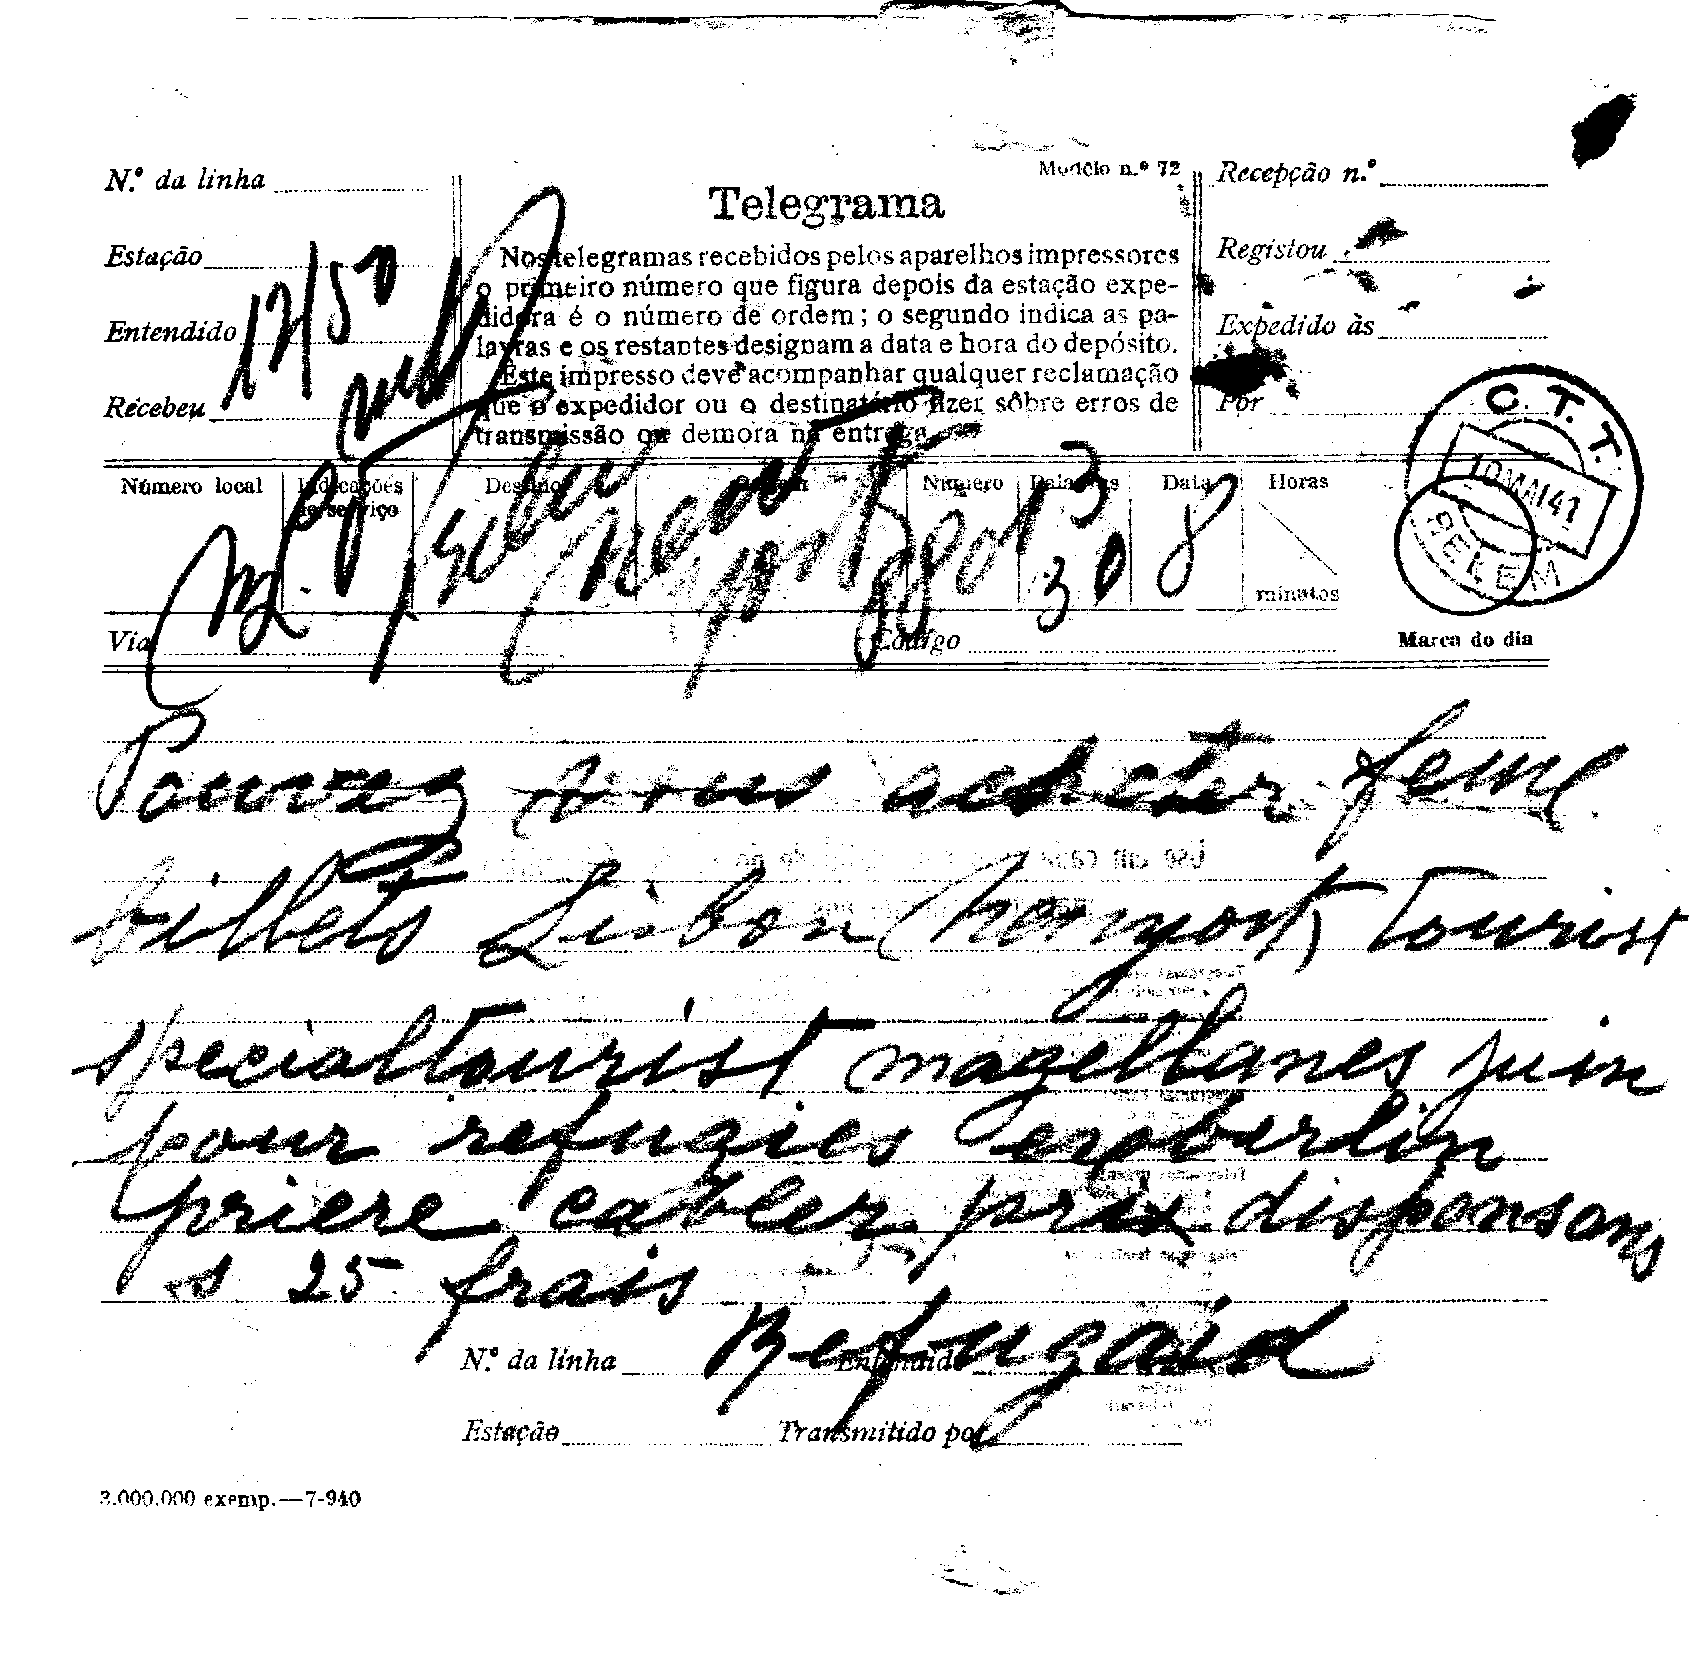 Modêlo n.º 72
N.º da linha
Telegrama
Recepção n.º
Estação
Entendido
Recebeu
17/50
Nos telegramas recebidos pelos aparelhos impressores
o primeiro número que figura depois da estação expe-
didora é o número de ordem; o segundo indica as pa-
lavras e os restantes designam a data e hora do depósito.
Este impresso deve acompanhar qualquer reclamação
que o expedidor ou o destinatário fizer sôbre erros de
transmissão ou demora na entrega.
Registou
Expedido às
Por
C. T. T.
10 MAI 41
BELEM
Número local
Indicações de serviço
Destino
Número
Palavras
Data
Horas
30
8
minutos
Via
Código
Marca do dia
Pouvez vous acheter ferme
billets Lisbon (newyork) tourist
specialtourist magellanes juin
pour refugies exberlin
priere cabler prix disponsons
s 25 frais
Refugaid
N.º da linha
Entendido
Estação
Transmitido por
3.000.000 exemp.—7-940